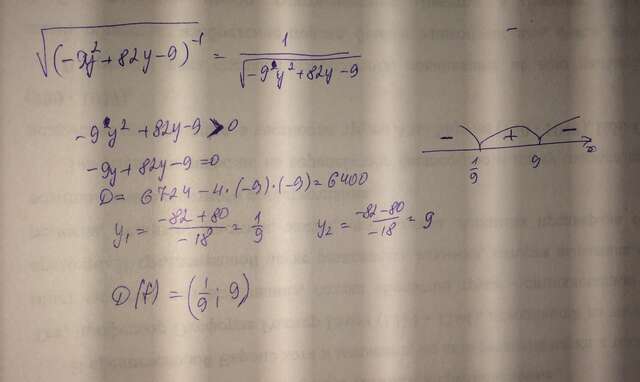 √((-9y²+82y-9)⁻¹) = 1/√(-9y²+82y-9)
-9y²+82y-9>0
-9y+82y-9=0
D= 6724-4·(-9)·(-9)=6400
y₁ = (-82+80)/(-18) = 1/9 y₂ = (-82-80)/(-18) = 9
- + -
1/9 9
D(f) = (1/9; 9)